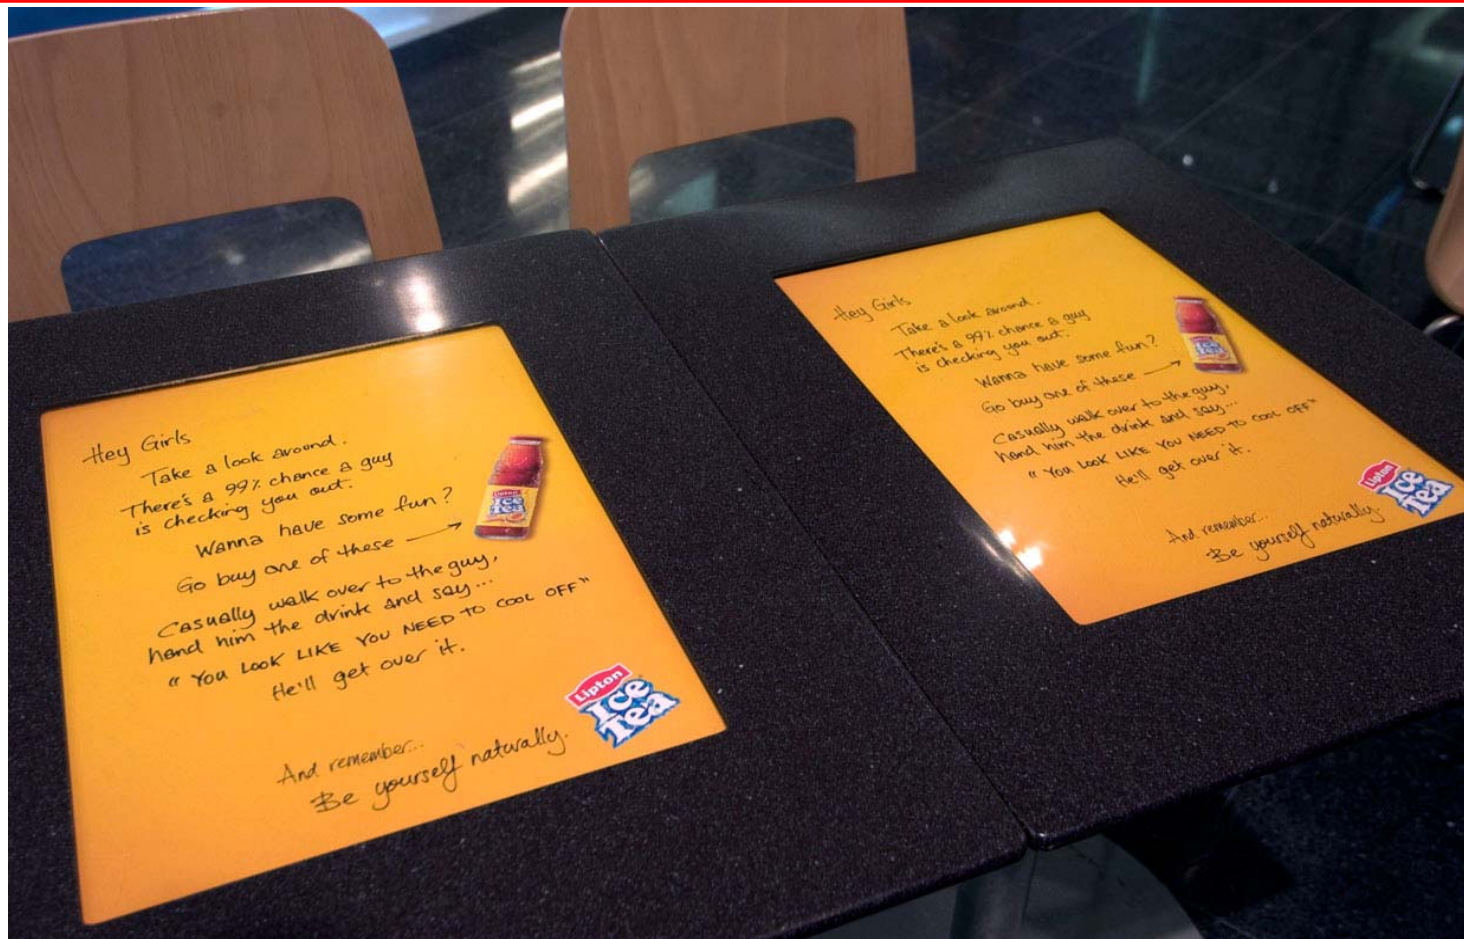 Hey Girls
Take a look around.
There's a 99% chance a guy
is checking you out.
Wanna have some fun?
Go buy one of these
Casually walk over to the guy,
hand him the drink and say...
"YOU LOOK LIKE YOU NEED TO COOL OFF"
He'll get over it.
And remember...
Be yourself naturally.
Lipton
Ice
Tea
Lipton
Ice
Tea
Hey Girls
Take a look around.
There's a 99% chance a guy
is checking you out.
Wanna have some fun?
Go buy one of these
Casually walk over to the guy,
hand him the drink and say...
"YOU LOOK LIKE YOU NEED TO COOL OFF"
He'll get over it.
And remember...
Be yourself naturally.
Ice
Tea
Lipton
Ice
Tea